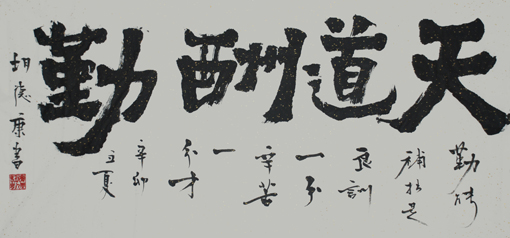 天道酬勤
勤能
補拙是
良訓
一分
辛苦
一
分才
辛卯
立夏
胡 康書